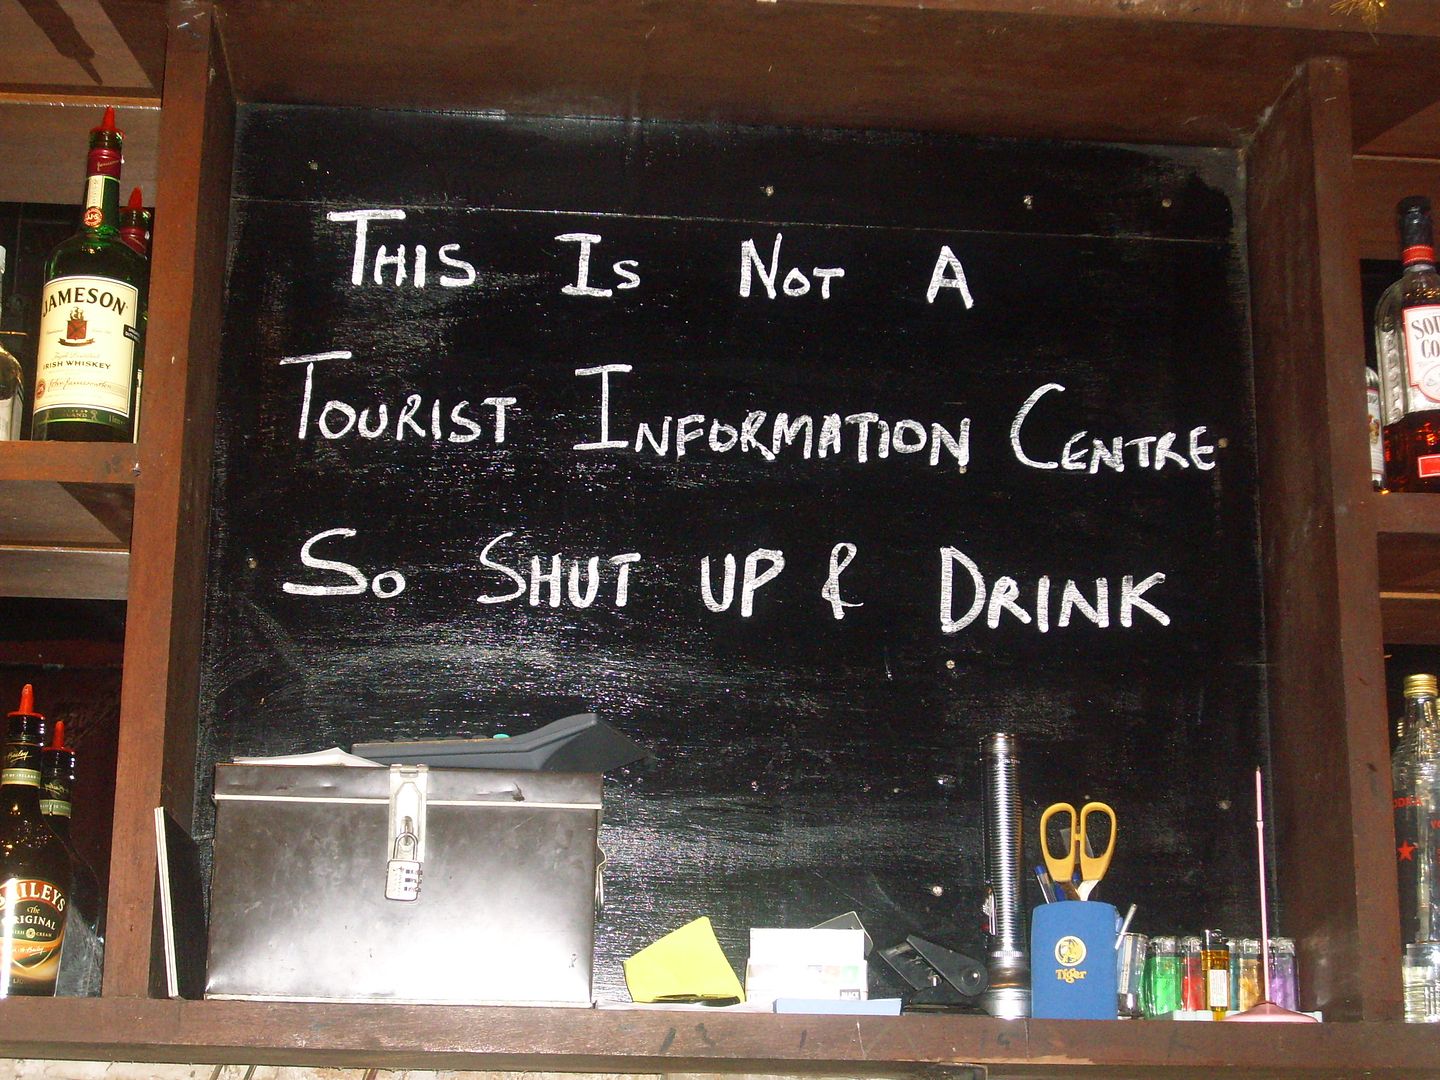 This Is Not A
Tourist Information Centre
So Shut up & Drink
JAMESON
IRISH WHISKEY
The
ORIGINAL
Tiger